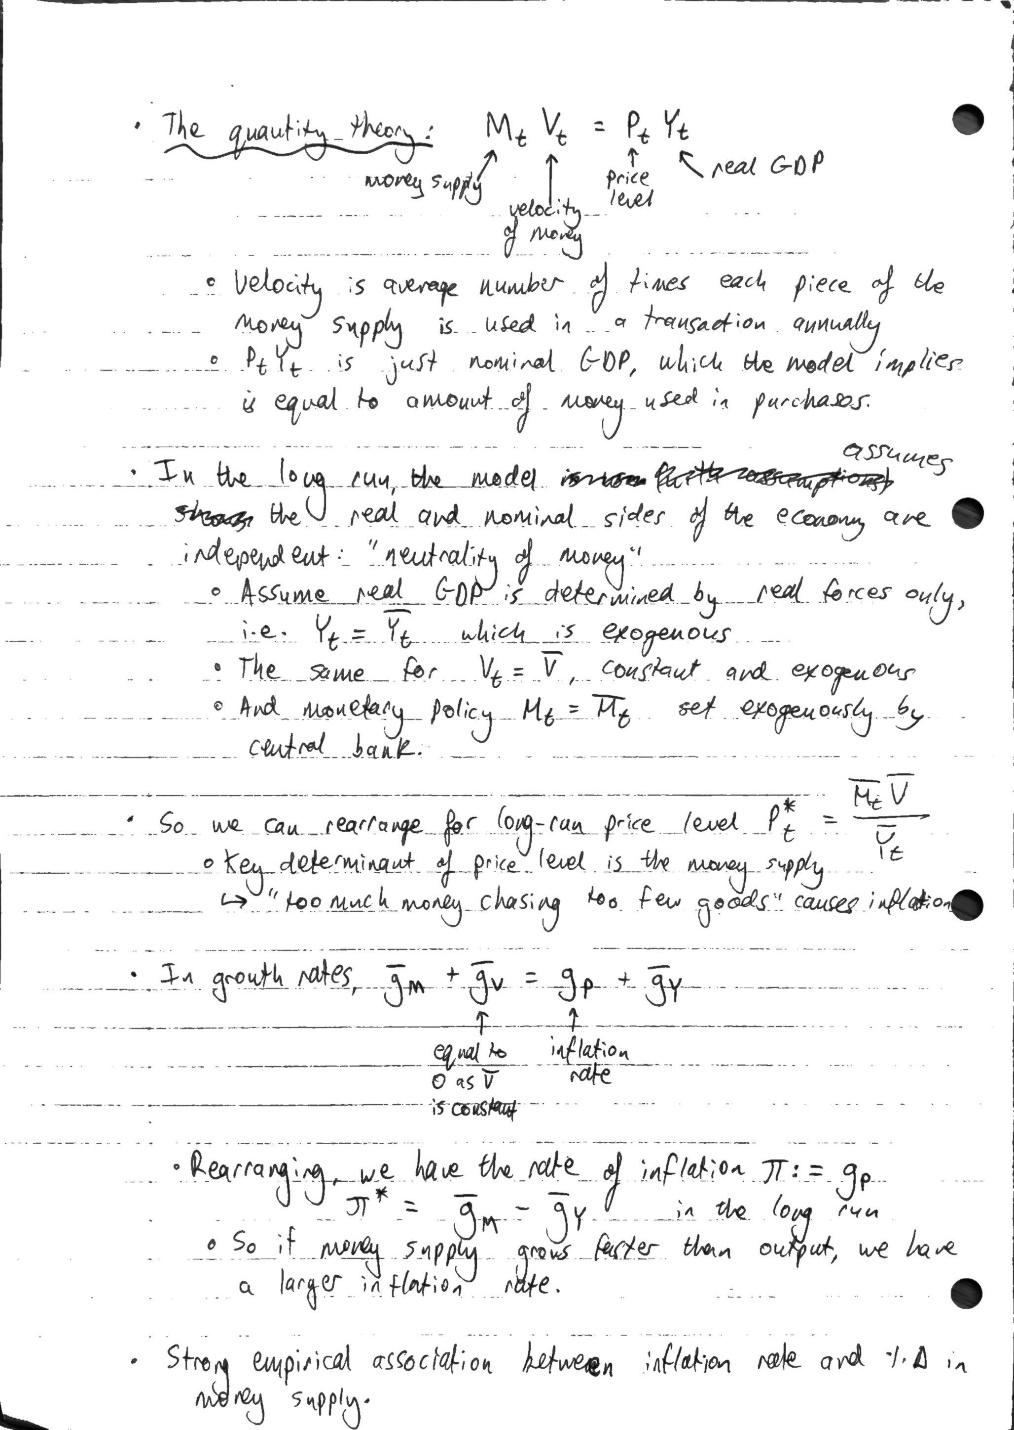 • The quantity theory: M_t V_t = P_t Y_t
money supply
velocity of money
price level
real GDP
◦ Velocity is average number of times each piece of the
money supply is used in a transaction annually
◦ P_t Y_t is just nominal GDP, which the model implies
is equal to amount of money used in purchases.
• In the long run, the model assumes
the real and nominal sides of the economy are
independent: "neutrality of money"
◦ Assume real GDP is determined by real forces only,
i.e. Y_t = Y̅_t which is exogenous
◦ The same for V_t = V̅, constant and exogenous
◦ And monetary policy M_t = M̅_t set exogenously by
central bank.
• So we can rearrange for long-run price level P_t^* = M̅_t V̅ / Y̅_t
◦ Key determinant of price level is the money supply
↳ "too much money chasing too few goods" causes inflation
• In growth rates, g̅_M + g̅_V = g_P + g̅_Y
equal to
0 as V̅
is constant
inflation
rate
• Rearranging, we have the rate of inflation π := g_P
π^* = g̅_M − g̅_Y in the long run
◦ So if money supply grows faster than output, we have
a larger inflation rate.
• Strong empirical association between inflation rate and %Δ in
money supply.